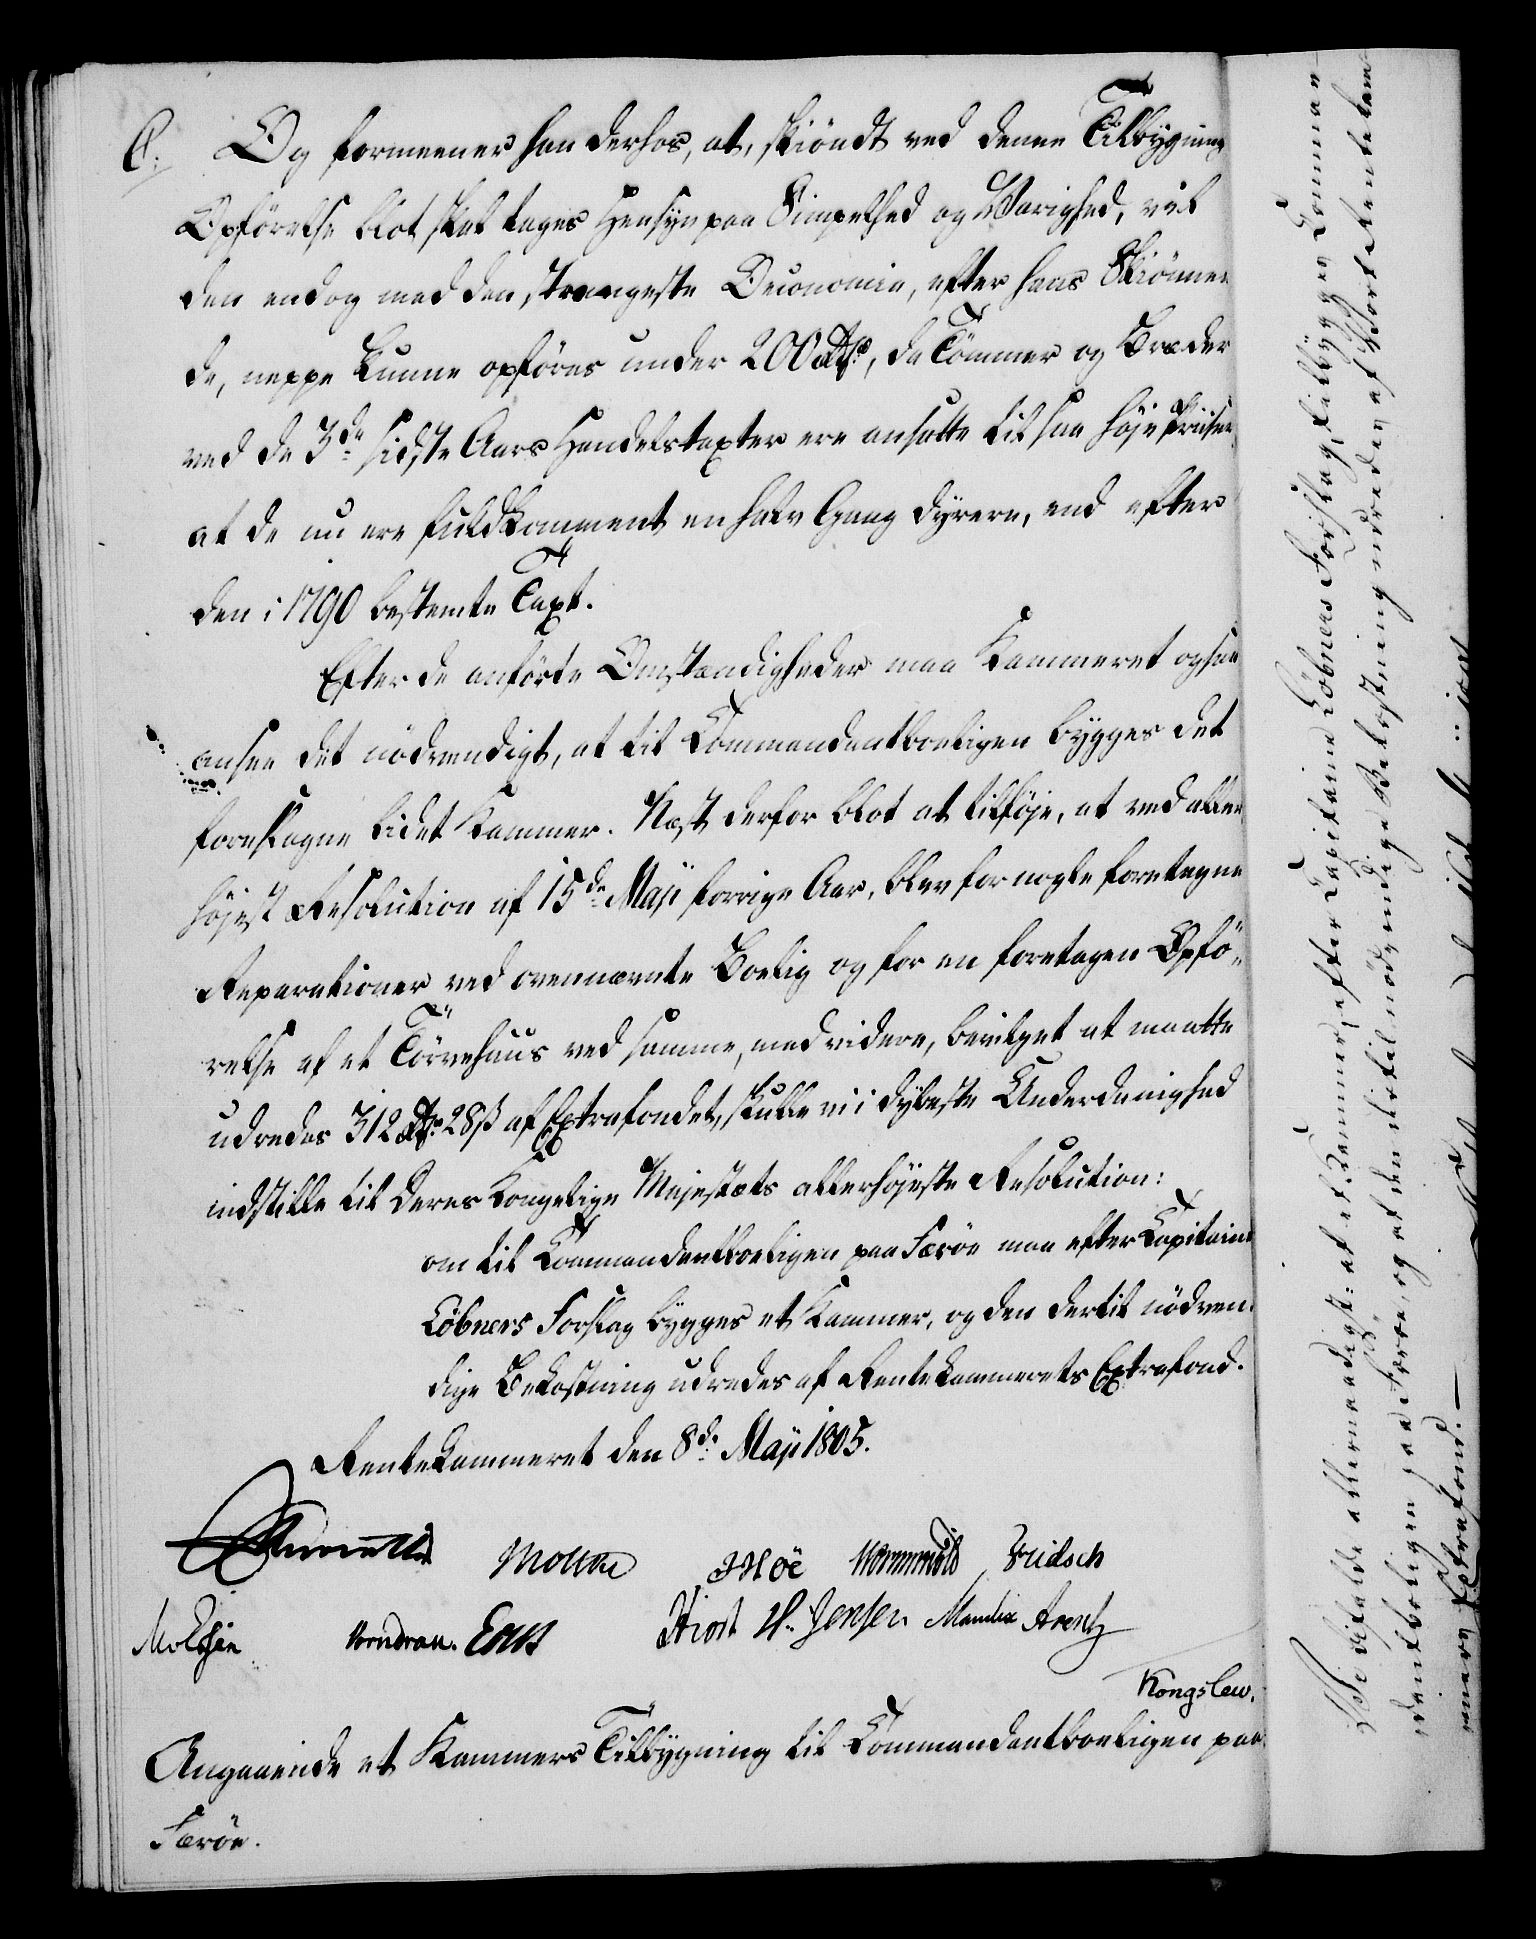 C. Og formeener han derhos, at, skiöndt ved denne Tilbygnings
Opförelse blot skal tages Hensyn paa Simpelhed og Varighed, vil
den endog med den strængeste Oeconomie, efter hans Skiönnen-
de, neppe kunne opföres under 200 Rd., da Tömmer og Bræder
ved de 3de sidste Aars Handelstaxter ere ansatte til saa höje Priiser
at de nu ere fuldkomment en halv Gang dyrere, end efter
den i 1790 bestemte Taxt.
Efter de anförte Omstændigheder maa Kammeret ogsaa
ansee det nödvendigt, at til Commandantboeligen bygges det
foreslagne lidet Kammer. Næst derfor blot at tilföje, at ved aller-
höjest Resolution af 15de Maji forrige Aar, blev for nogle foretagne
Reparationer ved ovennævnte Boelig og for en foretagen Opfö-
relse af et Törvehuus ved samme, med videre, bevilget at maatte
udredes 312 Rd. 28 ß af Extrafondet, skulle vi i dybeste Underdanighed
indstille til Deres Kongelige Majestæts allerhöjeste Resolution:
om til Commandantboeligen paa Færöe maa efter Capitaine
Löbners Forslag bygges et Kammer, og den dertil nödven-
dige Bekostning udredes af Rentekammerets Extrafond.
Rentekammeret den 8de Maji 1805.
Moltke Wormskiold Fridsch
Hiort H. Jensen Manthey Arentz
Kongslew.
Angaaende et Kammers Tilbygning til Commandantboeligen paa
Færöe.
Vi ville allernaadigst: at et Kammer, efter Capitaine Löbners Forslag, tilbygges Comman-
dantboligen paa Færöe, og at den dertil nödvendige Bekostning udredes af Vort Rentekam-
mers Extrafond. —